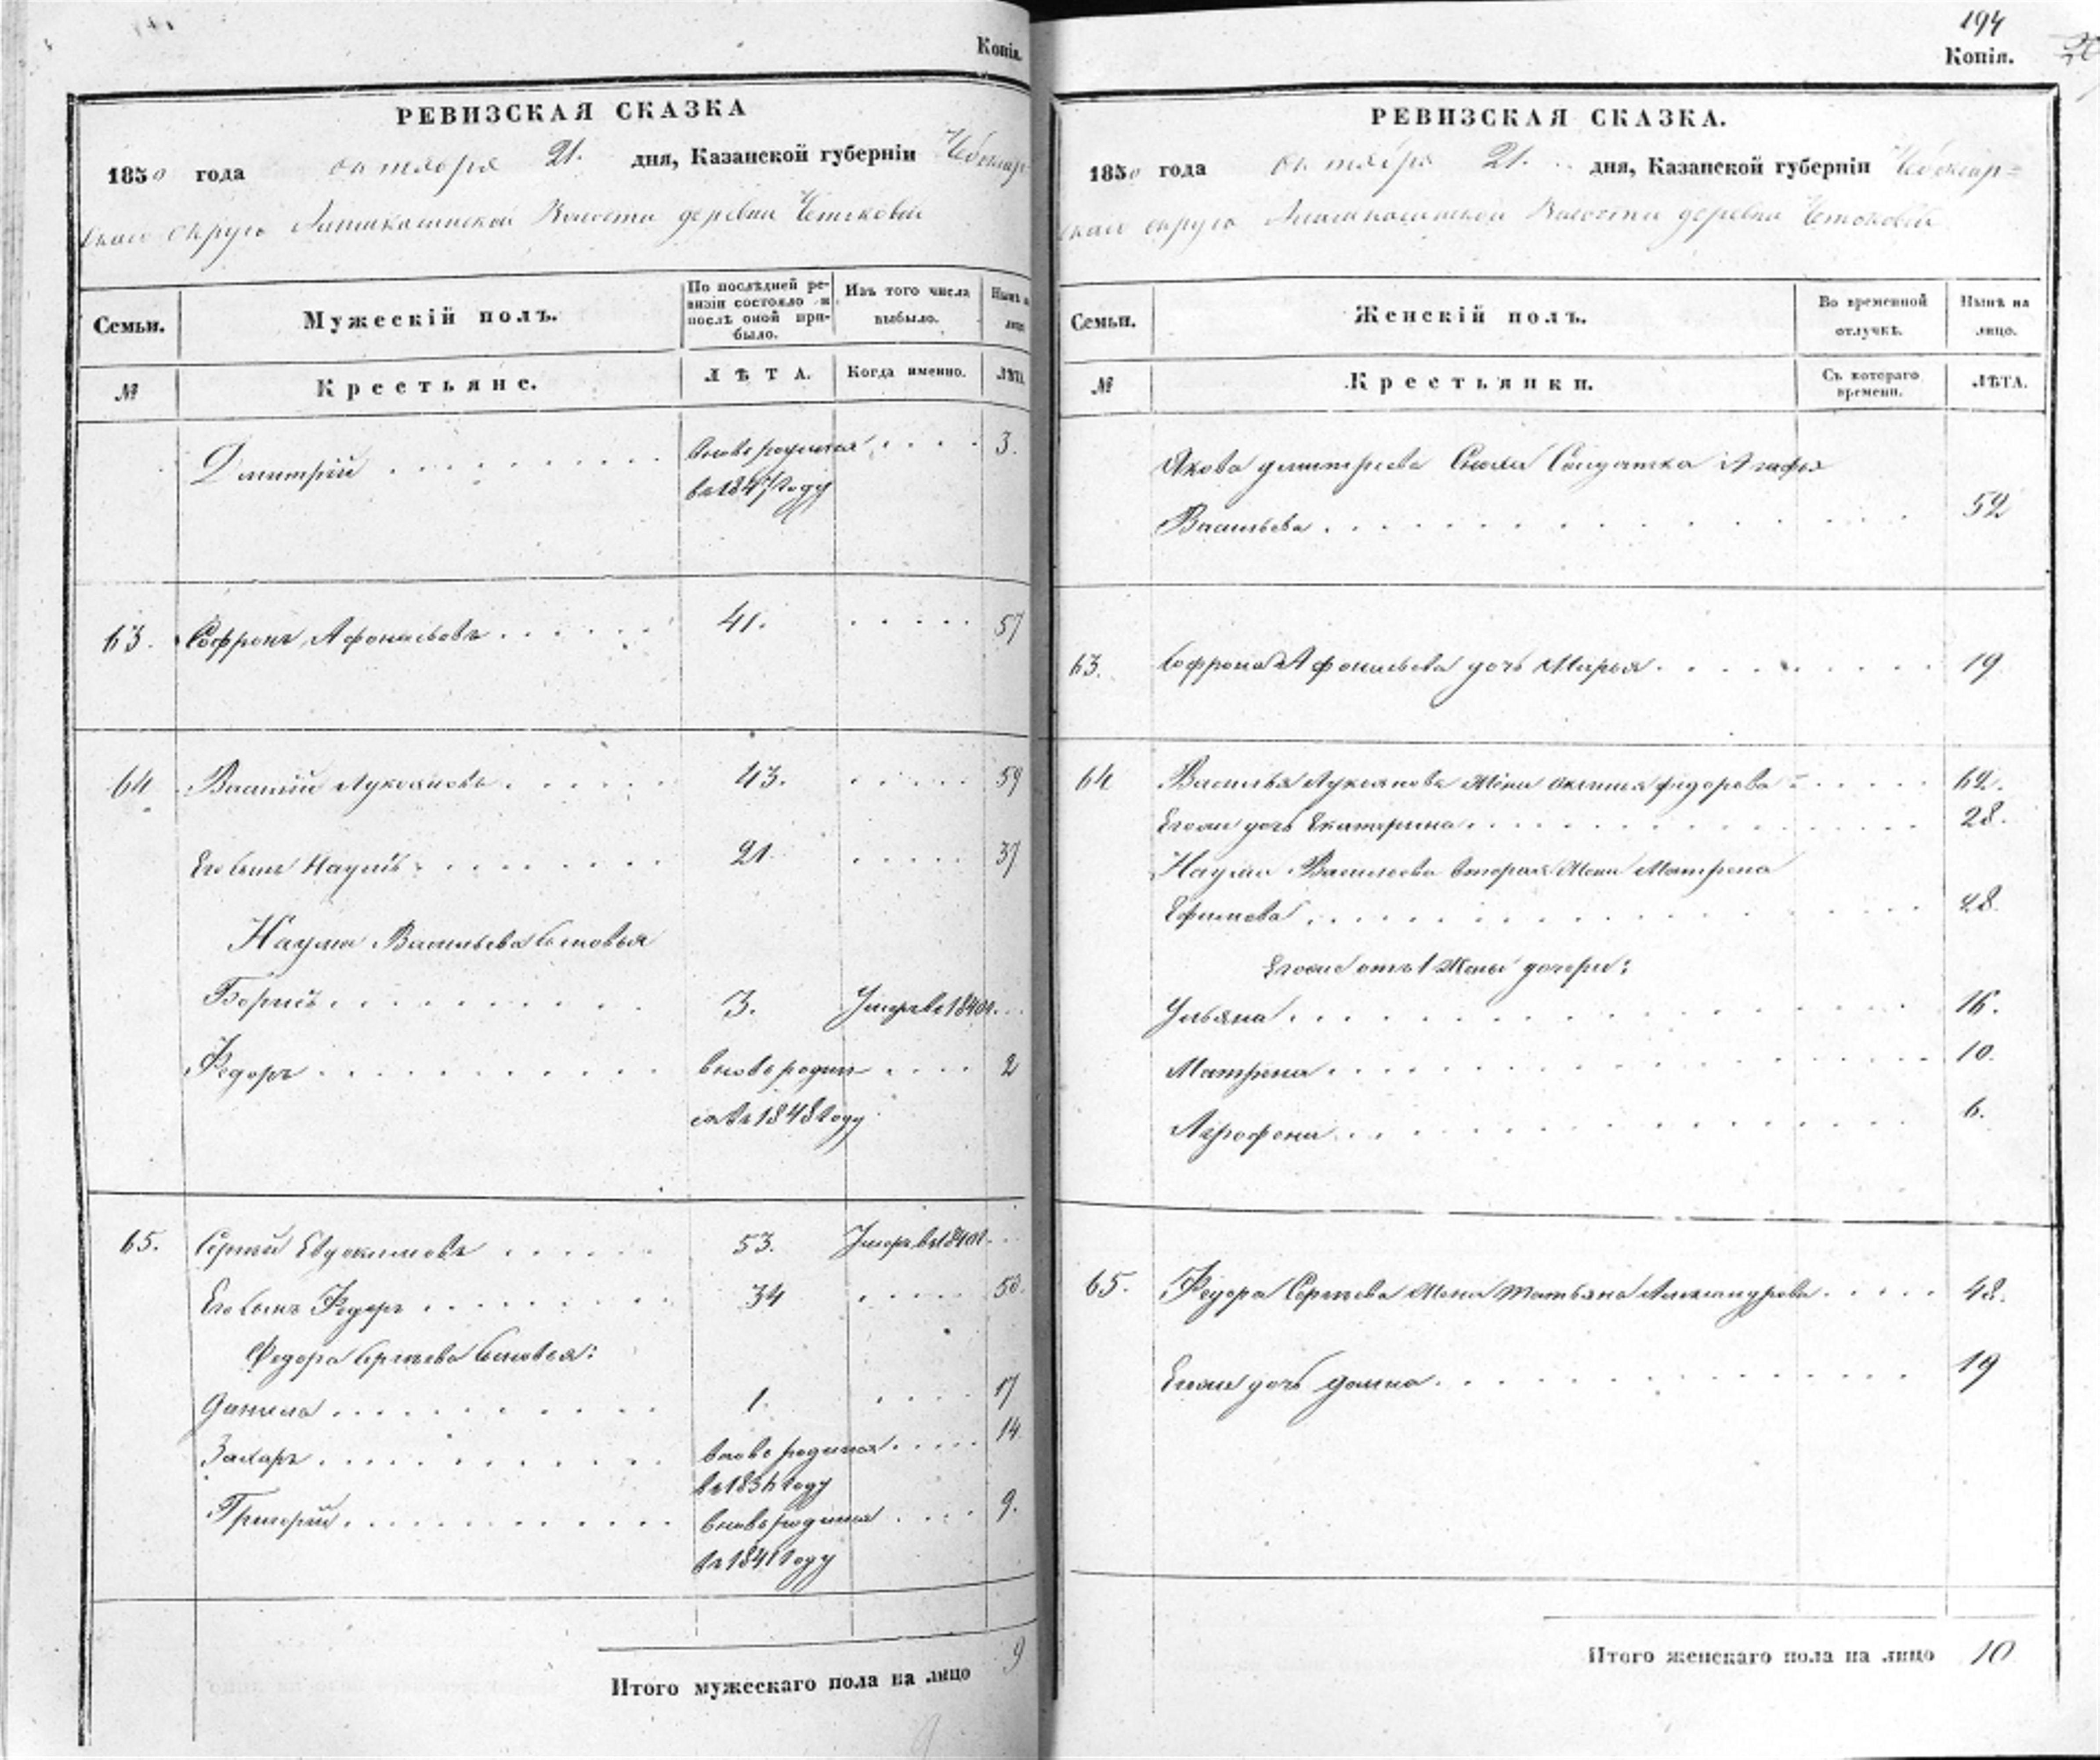 Копія.
РЕВИЗСКАЯ СКАЗКА
1850 года октября 21. дня, Казанской губерніи Чебоксар
скаго округа волости деревни
Семьи.
Мужескій полъ.
По послѣдней ре-
визіи состояло и
послѣ оной при-
было.
Изъ того числа
выбыло.
Нынѣ н
лицо
№
Крестьяне.
ЛѢТА.
Когда именно.
ЛѢТА
Дмитрій . . . . . . . . . вновь родился . . . . 3.
въ 1847 году
63. Софронъ Афонасьевъ . . . . . . 41. . . . . . 57
64 Василій Лукояновъ . . . . . . 43. . . . . . 59
Его сынъ Наумъ . . . . . . . 21. . . . . . 37
Наума Васильева сыновья
Борисъ . . . . . . . . . 3. Умеръ въ 1840 г. . .
Федоръ . . . . . . . . . вновь родил . . . . 2
ся въ 1848 году
65. Сергѣй Евдокимовъ . . . . . 53. Умеръ въ 1840 г. . .
Его сынъ Федоръ . . . . . . . 34 . . . . . 50.
Федора Сергѣева сыновья:
Данила . . . . . . . . . 1. . . . . 17
Захаръ . . . . . . . . . вновь родился . . . . . 14.
въ 1836 году
Григорій . . . . . . . . . . вновь родился . . . . 9.
въ 1841 году
Итого мужескаго пола на лицо 9
194
Копія.
РЕВИЗСКАЯ СКАЗКА.
1850 года октября 21. дня, Казанской губерніи Чебоксар=
скаго округа волости деревни
Семьи.
Женскій полъ.
Во временной
отлучкѣ.
Нынѣ на
лицо.
№
Крестьянки.
Съ котораго
времени.
ЛѢТА.
Якова Дмитреева Солдатка Агафья
Васильева . . . . . . . . . . . . . 52
63. Софрона Афонасьева дочь Марья . . . . . . . . 19
64 Василья Лукоянова жена Федорова . . . . . 62.
Егоже дочь Екатерина . . . . . . . . . . . . 28.
Наума Васильева вторая жена Матрена
Ефимова . . . . . . . . . . . . . 28.
Егоже отъ 1 жены дочери:
Ульяна . . . . . . . . . . . . . 16.
Матрена . . . . . . . . . . . . . 10.
Аграфена . . . . . . . . . . . . . 6.
65. Федора Сергѣева жена Татьяна Александрова . . . . . 48.
Егоже дочь Домна . . . . . . . . . . . . 19
Итого женскаго пола на лицо 10